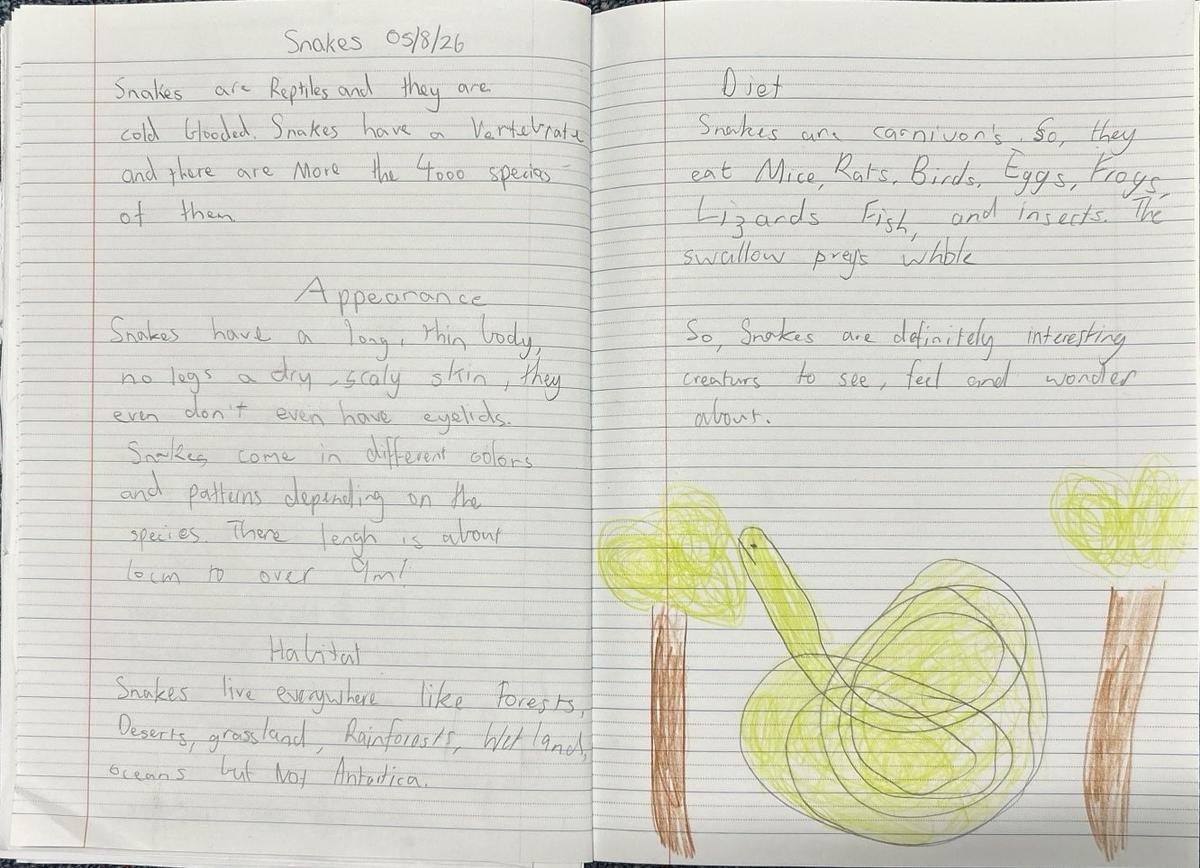 Snakes 05/8/26
Snakes are Reptiles and they are
cold blooded. Snakes have a Vertebrate
and there are More the 4000 species
of them
Appearance
Snakes have a long, thin body,
no legs a dry, scaly skin, they
even don't even have eyelids.
Snakes come in different colors
and patterns depending on the
species. There lengh is about
10cm to over 9m!
Habitat
Snakes live everywhere like Forests,
Deserts, grassland, Rainforests, Wet land,
oceans but Not Antartica.
Diet
Snakes are carnivor's. So, they
eat Mice, Rats, Birds, Eggs, Frogs,
Lizards Fish, and insects. The
swallow preys whole
So, Snakes are definitely interesting
creaturs to see, feel and wonder
about.